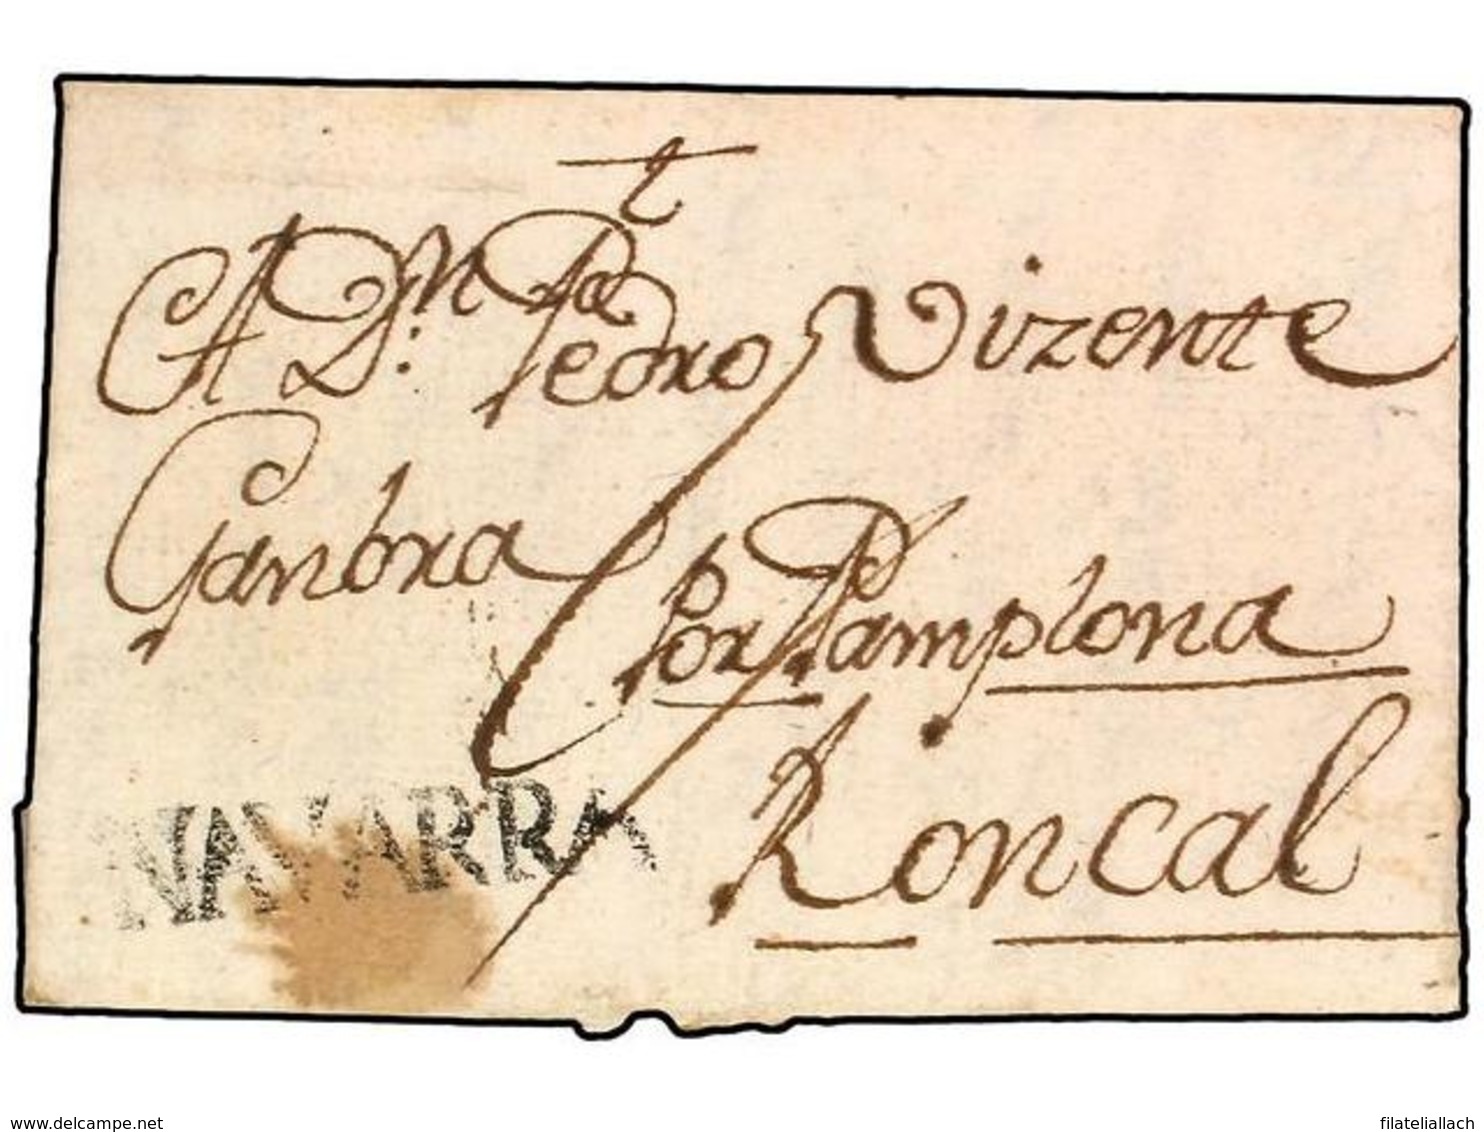 t
A Dn. Pedro Vizente
Ganbra
Por Pamplona
Roncal
NAVARRA
www.delcampe.net
filateliallach